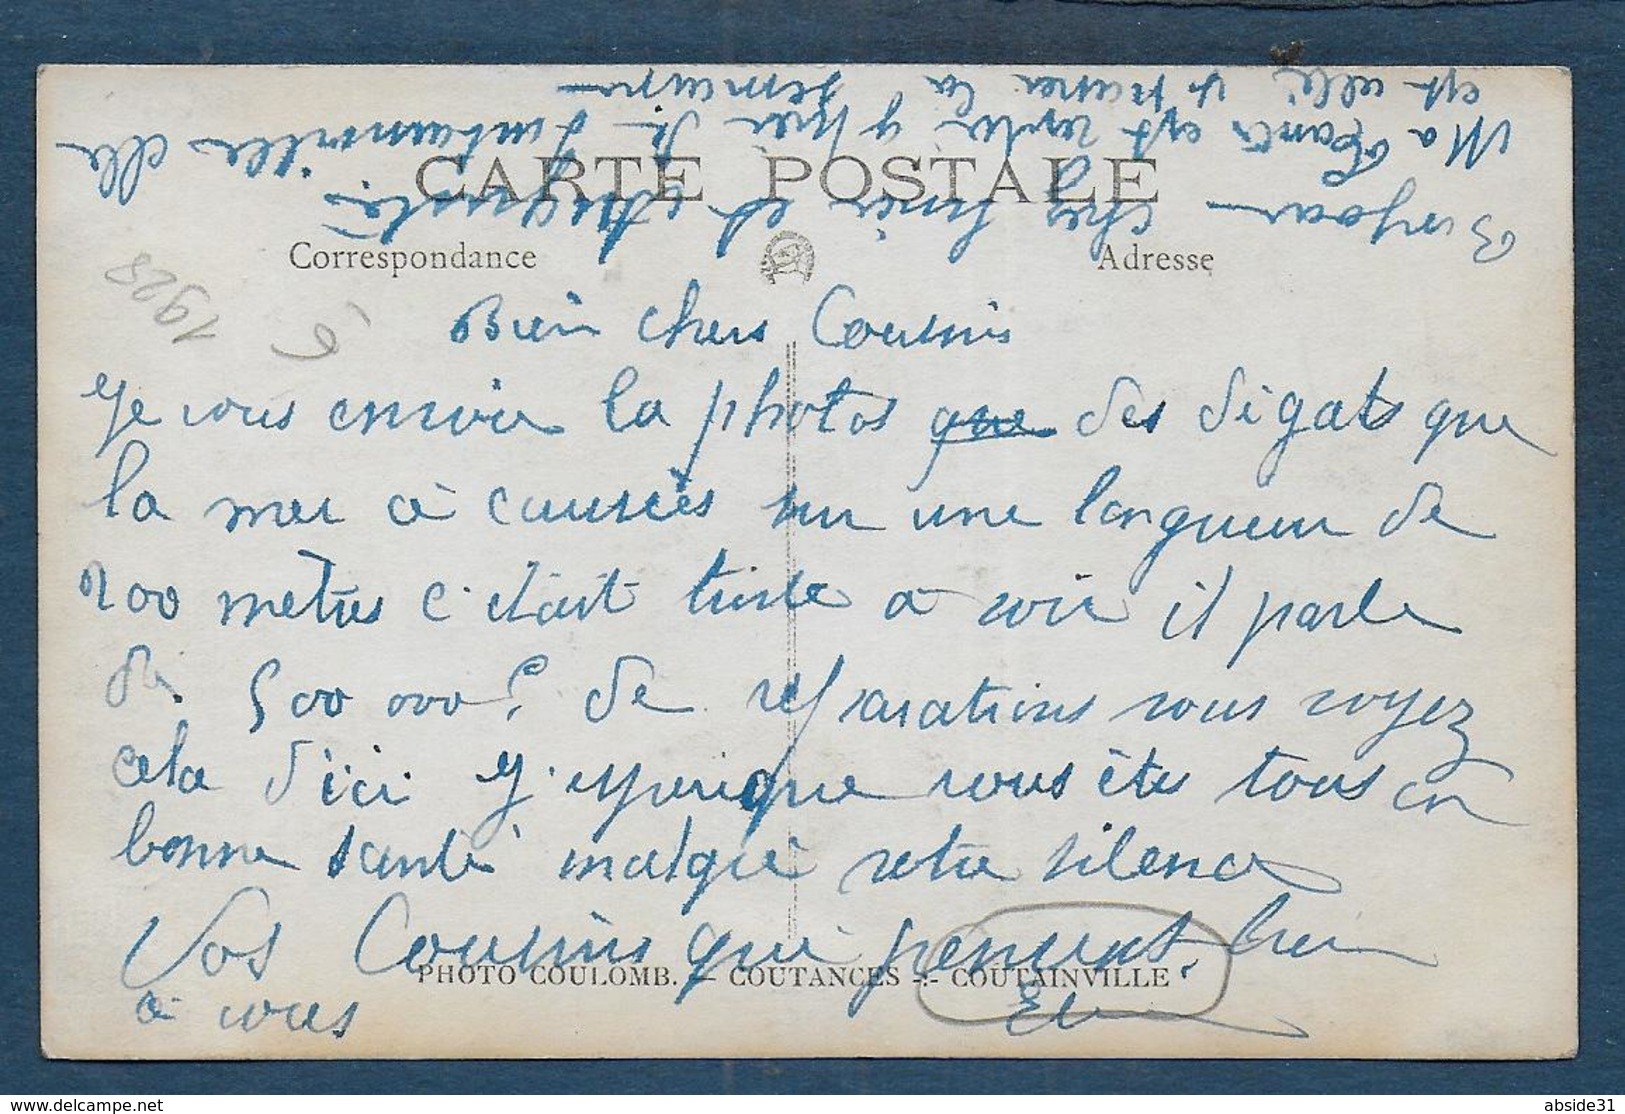 CARTE POSTALE
Correspondance Adresse
1928
Bien chers Cousins
Je vous envoie la photos que des dégats que
la mer à causées sur une longueur de
200 mètres c'était triste à voir il parle
de 500 000 F de reparations vous voyez
cela d'ici J'espérique vous êtes tous en
bonne santé malgré votre silence
Vos Cousins qui pensent bien
à vous
PHOTO COULOMB. - COUTANCES -:- COUTAINVILLE
Bonjour chez et
Ma est hier de elle
est allé passer la semaine
abside31
delcampe.net